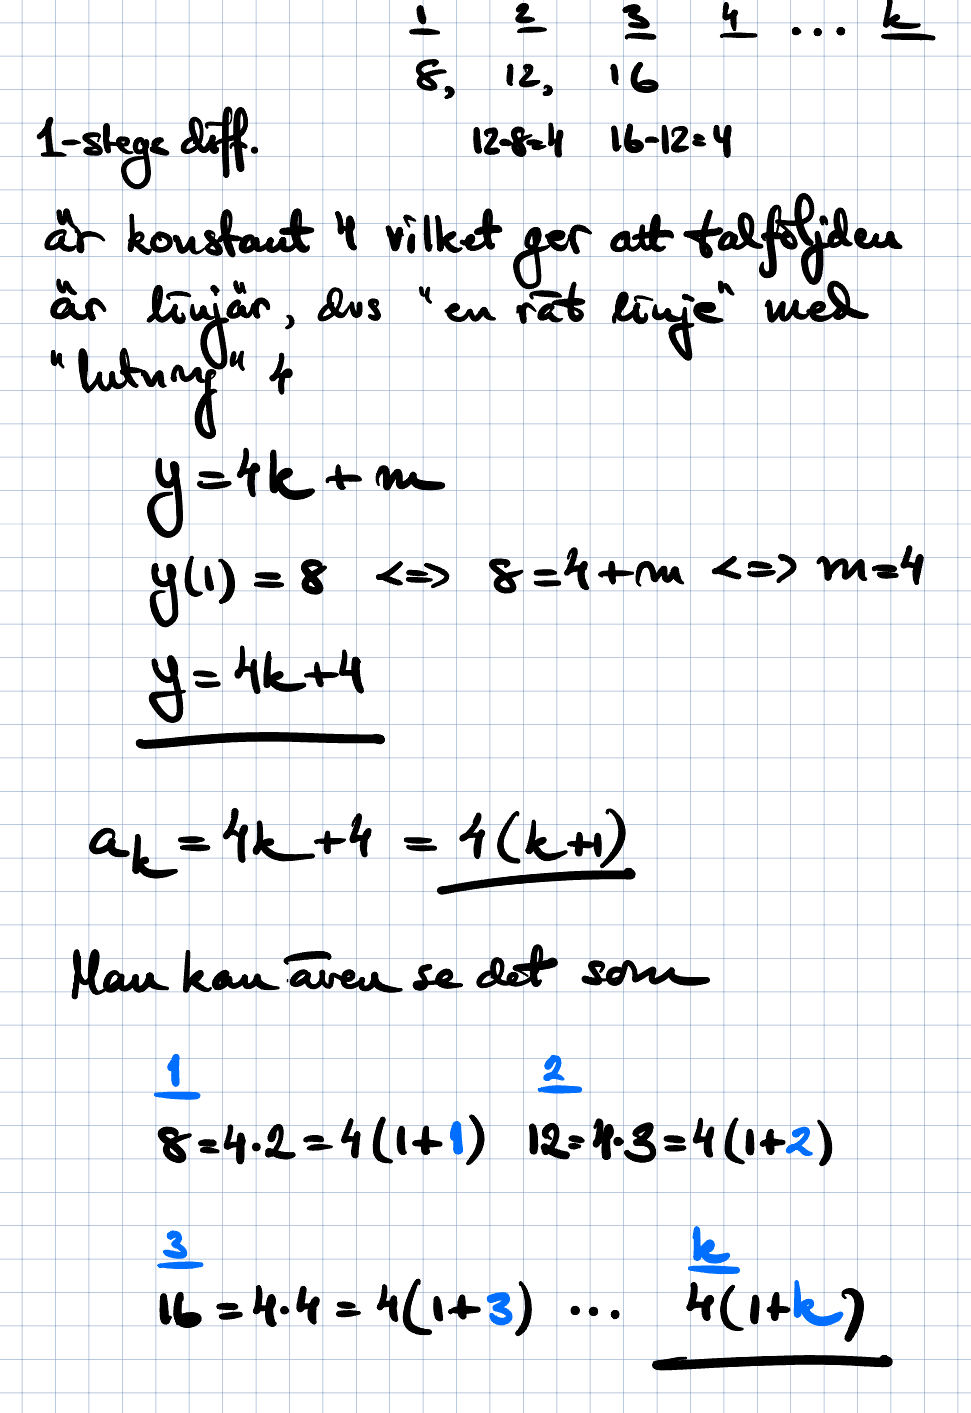 1 2 3 4 ... k
8, 12, 16
1-stegs diff. 12-8=4 16-12=4
är konstant 4 vilket ger att talföljden
är linjär, dvs "en rät linje" med
"lutning" 4
y = 4k + m
y(1) = 8 <=> 8 = 4 + m <=> m = 4
y = 4k + 4
a_k = 4k + 4 = 4(k+1)
Man kan även se det som
1 2
8 = 4·2 = 4(1+1) 12 = 4·3 = 4(1+2)
3 k
16 = 4·4 = 4(1+3) ... 4(1+k)